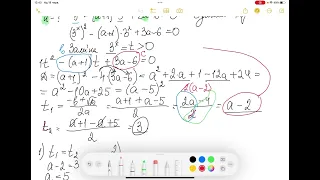 (3ˣ)² - (a+1)·3ˣ + 3a-6 = 0
Заміна 3ˣ = t > 0
1t² - (a+1)t + 3a-6 = 0
D = (a+1)² - 4·(3a-6) = a² + 2a + 1 - 12a + 24 =
= a² - 10a + 25 = (a-5)²
t₁ = -b+√D / 2a = a+1+a-5 / 2 = 2a-4 / 2 = a-2
2(a-2)
t₂ = a+1-a+5 / 2 = 3
1) t₁ = t₂
a-2 = 3
a = 5